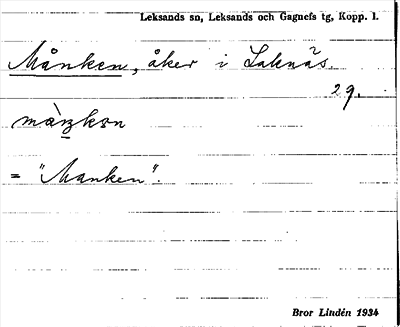 Leksands sn, Leksands och Gagnefs tg, Kopp. l.
Månken, åker i Laknäs.
29.
= "Manken".
Bror Lindén 1934